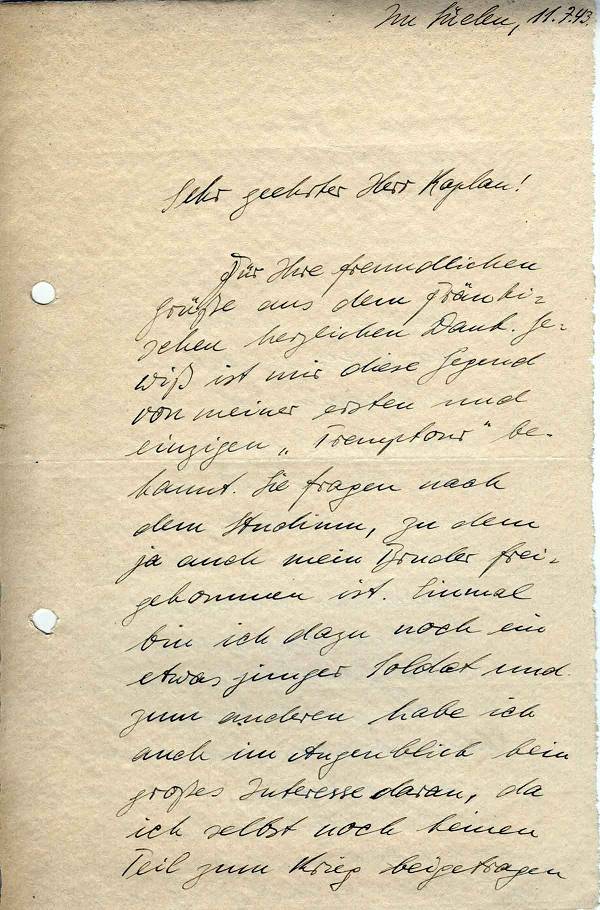 Im Süden, 11.7.43.
Sehr geehrter Herr Kaplan!
Für Ihre freundlichen
Grüße aus dem Fränki-
schen herzlichen Dank. Ge-
wiß ist mir diese Gegend
von meiner ersten und
einzigen „Tramptour" be-
kannt. Sie fragen nach
dem Studium, zu dem
ja auch mein Bruder frei-
gekommen ist. Einmal
bin ich dazu noch ein
etwas junger Soldat und
zum anderen habe ich
auch im Augenblick kein
großes Interesse daran, da
ich selbst noch keinen
Teil zum Krieg beigetragen